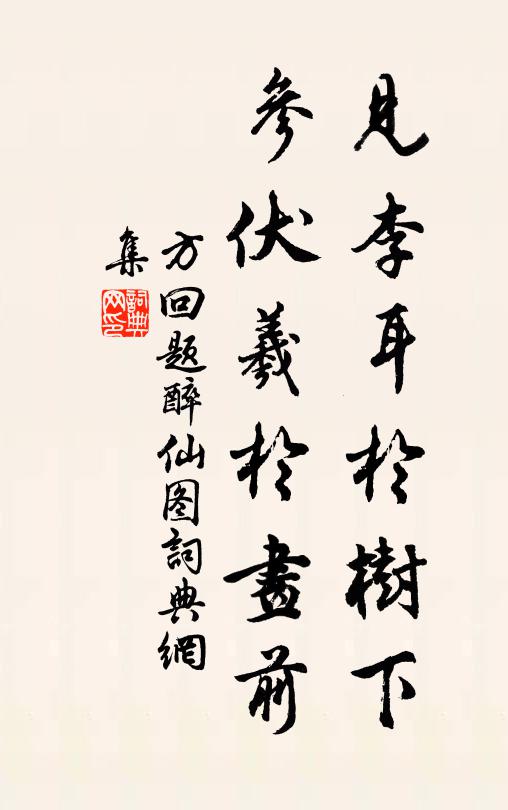 見李耳於樹下
參伏羲於畫前
方回题醉仙图詞典網
集
詞典
网印